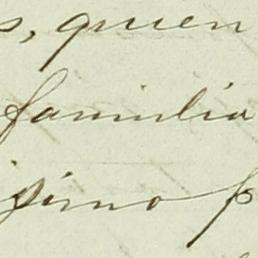 s, quien
familia
simo p